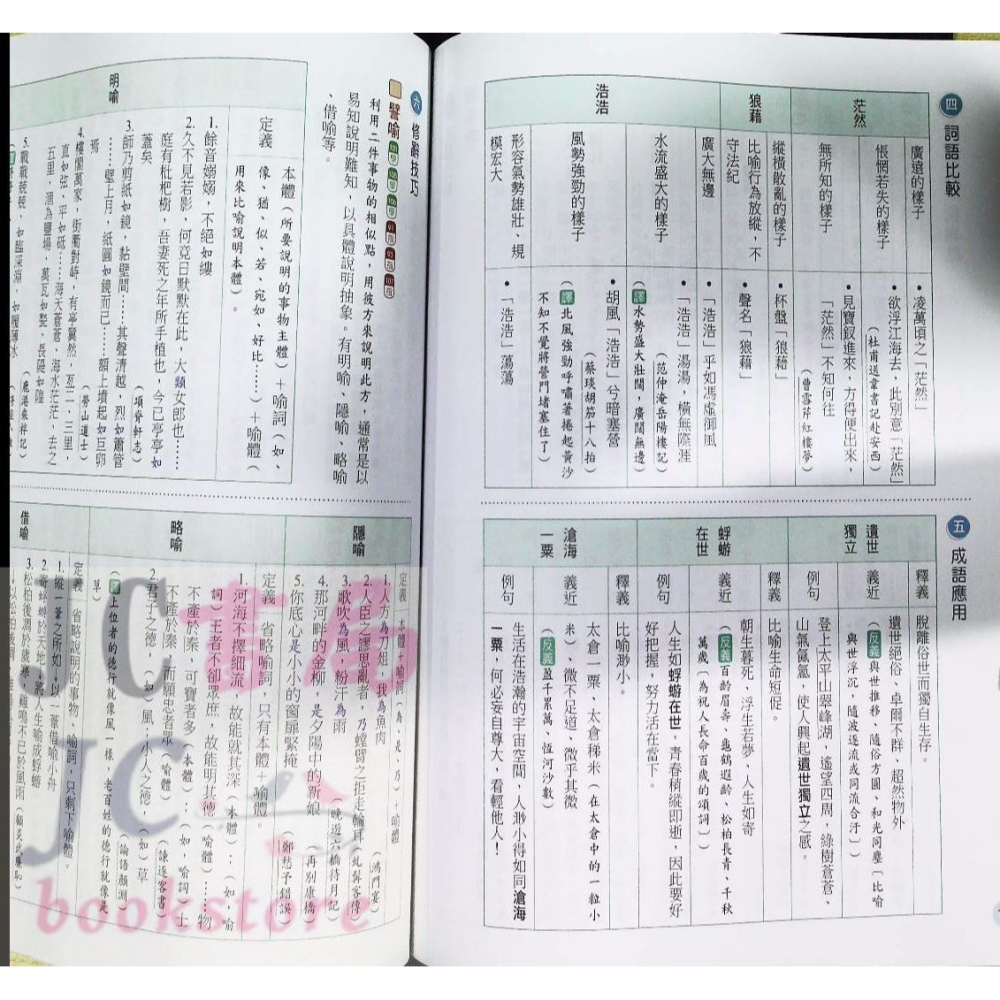 四 詞語比較
茫然
廣遠的樣子
•凌萬頃之「茫然」
悵惘若失的樣子
•欲浮江海去，此別意「茫然」
（杜甫送韋書記赴安西）
無所知的樣子
•見寶釵進來，方得便出來，
「茫然」不知何往
（曹雪芹紅樓夢）
狼藉
縱橫散亂的樣子
•杯盤「狼藉」
比喻行為放縱，不
守法紀
•聲名「狼藉」
浩浩
廣大無邊
•「浩浩」乎如馮虛御風
水流盛大的樣子
•「浩浩」湯湯，橫無際涯
（范仲淹岳陽樓記）
（譯水勢盛大壯闊，廣闊無邊）
風勢強勁的樣子
•胡風「浩浩」兮暗塞營
（蔡琰胡笳十八拍）
（譯北風強勁呼嘯著捲起黃沙
不知不覺將營門堵塞住了）
形容氣勢雄壯、規
模宏大
•「浩浩」蕩蕩
五 成語應用
遺世
獨立
釋義
脫離俗世而獨自生存。
義近
遺世絕俗、卓爾不群、超然物外
（反義與世推移、隨俗方圓、和光同塵〔比喻
與世浮沉，隨波逐流或同流合汙〕）
例句
登上太平山翠峰湖，遙望四周，綠樹蒼蒼、
山氣氤氳，使人興起遺世獨立之感。
蜉蝣
在世
釋義
比喻生命短促。
義近
朝生暮死、浮生若夢、人生如寄
（反義百齡眉壽、龜鶴遐齡、松柏長青、千秋
萬歲〔為祝人長命百歲的頌詞〕）
例句
人生如蜉蝣在世，青春稍縱即逝，因此要好
好把握，努力活在當下。
滄海
一粟
釋義
比喻渺小。
義近
太倉一粟、太倉稊米（在太倉中的一粒小
米）、微不足道、微乎其微
（反義盈千累萬、恆河沙數）
例句
生活在浩瀚的宇宙空間，人渺小得如同滄海
一粟，何必妄自尊大，看輕他人！
六 修辭技巧
譬喻
利用二件事物的相似點，用彼方來說明此方，通常是以
易知說明難知，以具體說明抽象。有明喻、隱喻、略喻
、借喻等。
明喻
定義
本體（所要說明的事物主體）＋喻詞（如、
像、猶、似、若、宛如、好比……）＋喻體（
用來比喻說明本體）。
1.餘音嫋嫋，不絕如縷
2.久不見若影，何竟日默默在此，大類女郎也……
庭有枇杷樹，吾妻死之年所手植也，今已亭亭如
蓋矣
（項脊軒志）
3.師乃剪紙如鏡，黏壁間……其聲清越，烈如簫管
……壁上月，紙圓如鏡而已……額上墳起如巨卵
焉
（勞山道士）
4.樓閣萬家，街衢對峙，有亭翼然，亙二、三里，
直如弦，平如砥……海天蒼蒼、海水茫茫，去之
五里，涸為鹽場，萬瓦如甃，長隄如隍
（鹿港乘桴記）
5.戰戰兢兢，如臨深淵，如履薄冰
隱喻
定義 本體＋喻詞（為、是、乃）＋喻體
1.人方為刀俎，我為魚肉
（鴻門宴）
2.人臣之謬思臣者，乃螳臂之拒走輪耳
（虬髯客傳）
3.歌吹為風，粉汗為雨
（晚遊六橋待月記）
4.那河畔的金柳，是夕陽中的新娘
（再別康橋）
5.你底心是小小的窗扉緊掩
（鄭愁予錯誤）
略喻
定義 省略喻詞，只有本體＋喻體。
1.河海不擇細流，故能就其深（本體）；（如，喻
詞）王者不卻眾庶，故能明其德（喻體）……物
不產於秦，可寶者多（本體）；（如，喻詞）士
不產於秦，而願忠者眾（喻體）
（諫逐客書）
2.君子之德，（如）風；小人之德，（如）草
（論語顏淵）
（譯上位者的德行就像風一樣，老百姓的德行就像是
草）
借喻
定義 省略說明的事物、喻詞，只剩下喻體。
1.縱一葦之所如，以一葦借喻小舟
2.寄蜉蝣於天地，將人生喻成蜉蝣
3.松柏後凋於歲寒，雞鳴不已於風雨（顧炎武廉恥）
JC書局
JC
bookstore